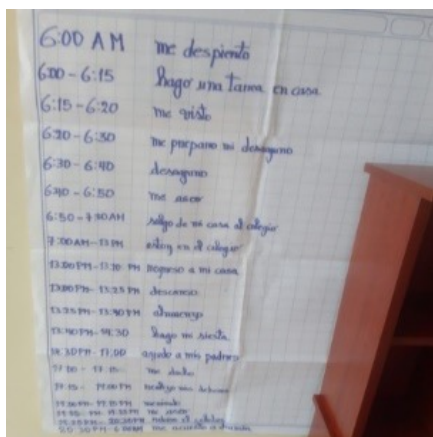 6:00 AM me despierto
6:00 - 6:15 hago una tarea en casa
6:15 - 6:20 me visto
6:20 - 6:30 me preparo mi desayuno
6:30 - 6:40 desayuno
6:40 - 6:50 me aseo
6:50 - 7:00 AM salgo de mi casa al colegio
7:00 AM - 13 PM estoy en el colegio
13:00 PM - 13:10 PM regreso a mi casa
13:25 PM descanso
13:25 PM - 13:40 PM almuerzo
13:40 PM - 14:30 hago mi siesta
14:30 PM - 17:00 ayudo a mis padres
17:00 - 17:15 me ducho
17:15 - 19:00 PM realizo mis deberes
19:00 PM - 19:15 PM
me aseo
20:30 PM me acuesto a